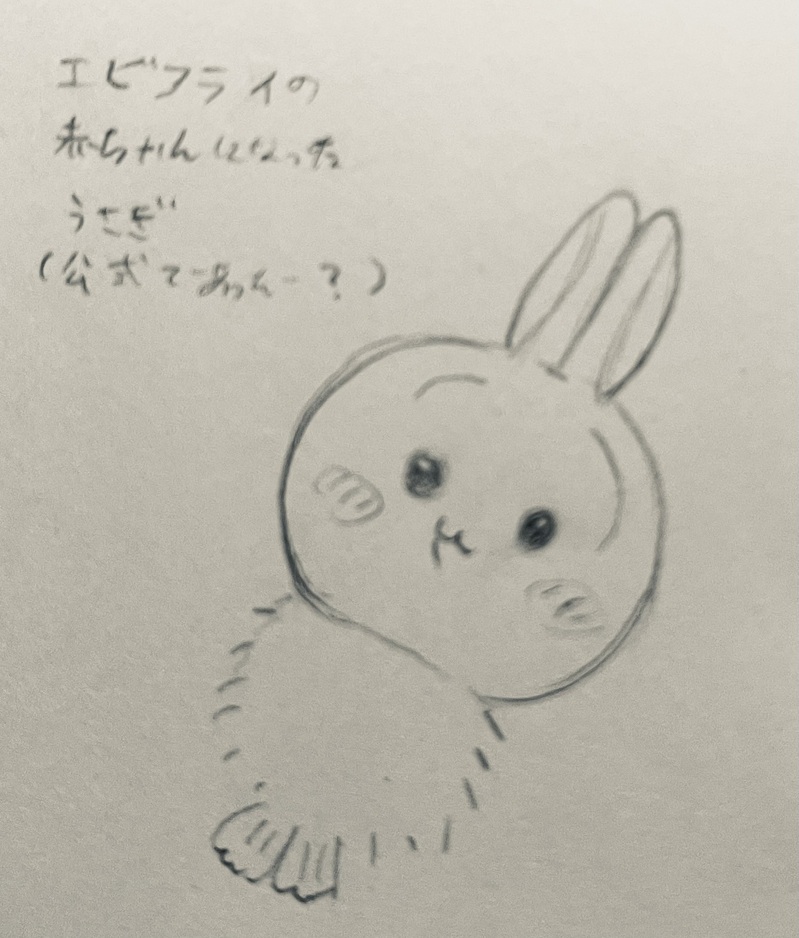 エビフライの
赤ちゃんになった
うさぎ
(公式であったー?)